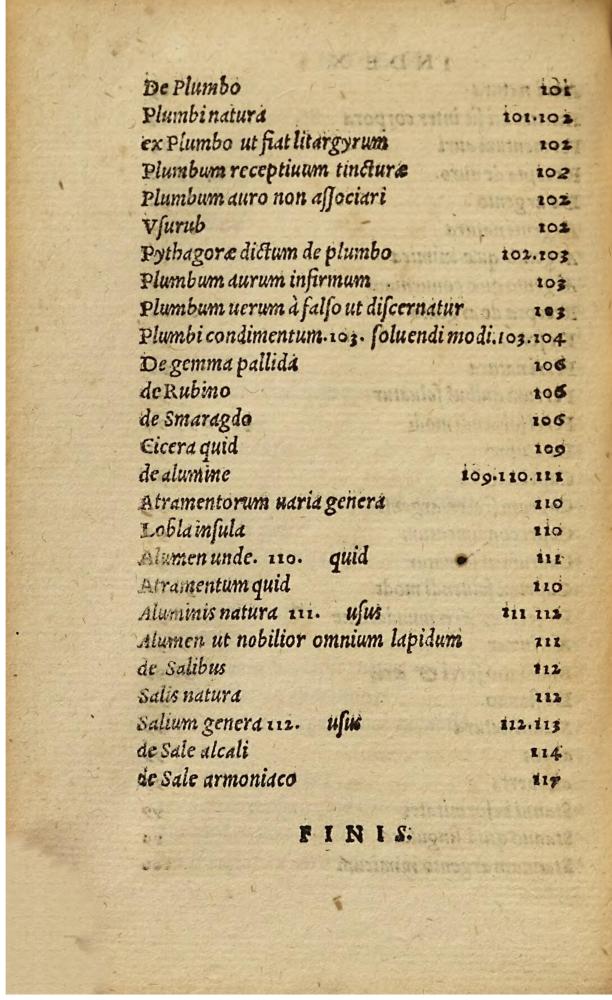 De Plumbo 101
Plumbi natura 101.102
ex Plumbo ut fiat litargyrum 102
Plumbum receptiuum tincturæ 102
Plumbum auro non aſſociari 102
Vſurub 102
Pythagoræ dictum de plumbo 102.103
Plumbum aurum infirmum 103
Plumbum uerum à falſo ut diſcernatur 103
Plumbi condimentum.103. ſoluendi modi.103.104
De gemma pallida 106
de Rubino 106
de Smaragdo 106
Cicera quid 109
de alumine 109.110.111
Atramentorum uaria genera 110
Lobla inſula 110
Alumen unde. 110. quid 111
Atramentum quid 110
Aluminis natura 111. uſus 111 112
Alumen ut nobilior omnium lapidum 111
de Salibus 112
Salis natura 112
Salium genera 112. uſus 112.113
de Sale alcali 114
de Sale armoniaco
FINIS.